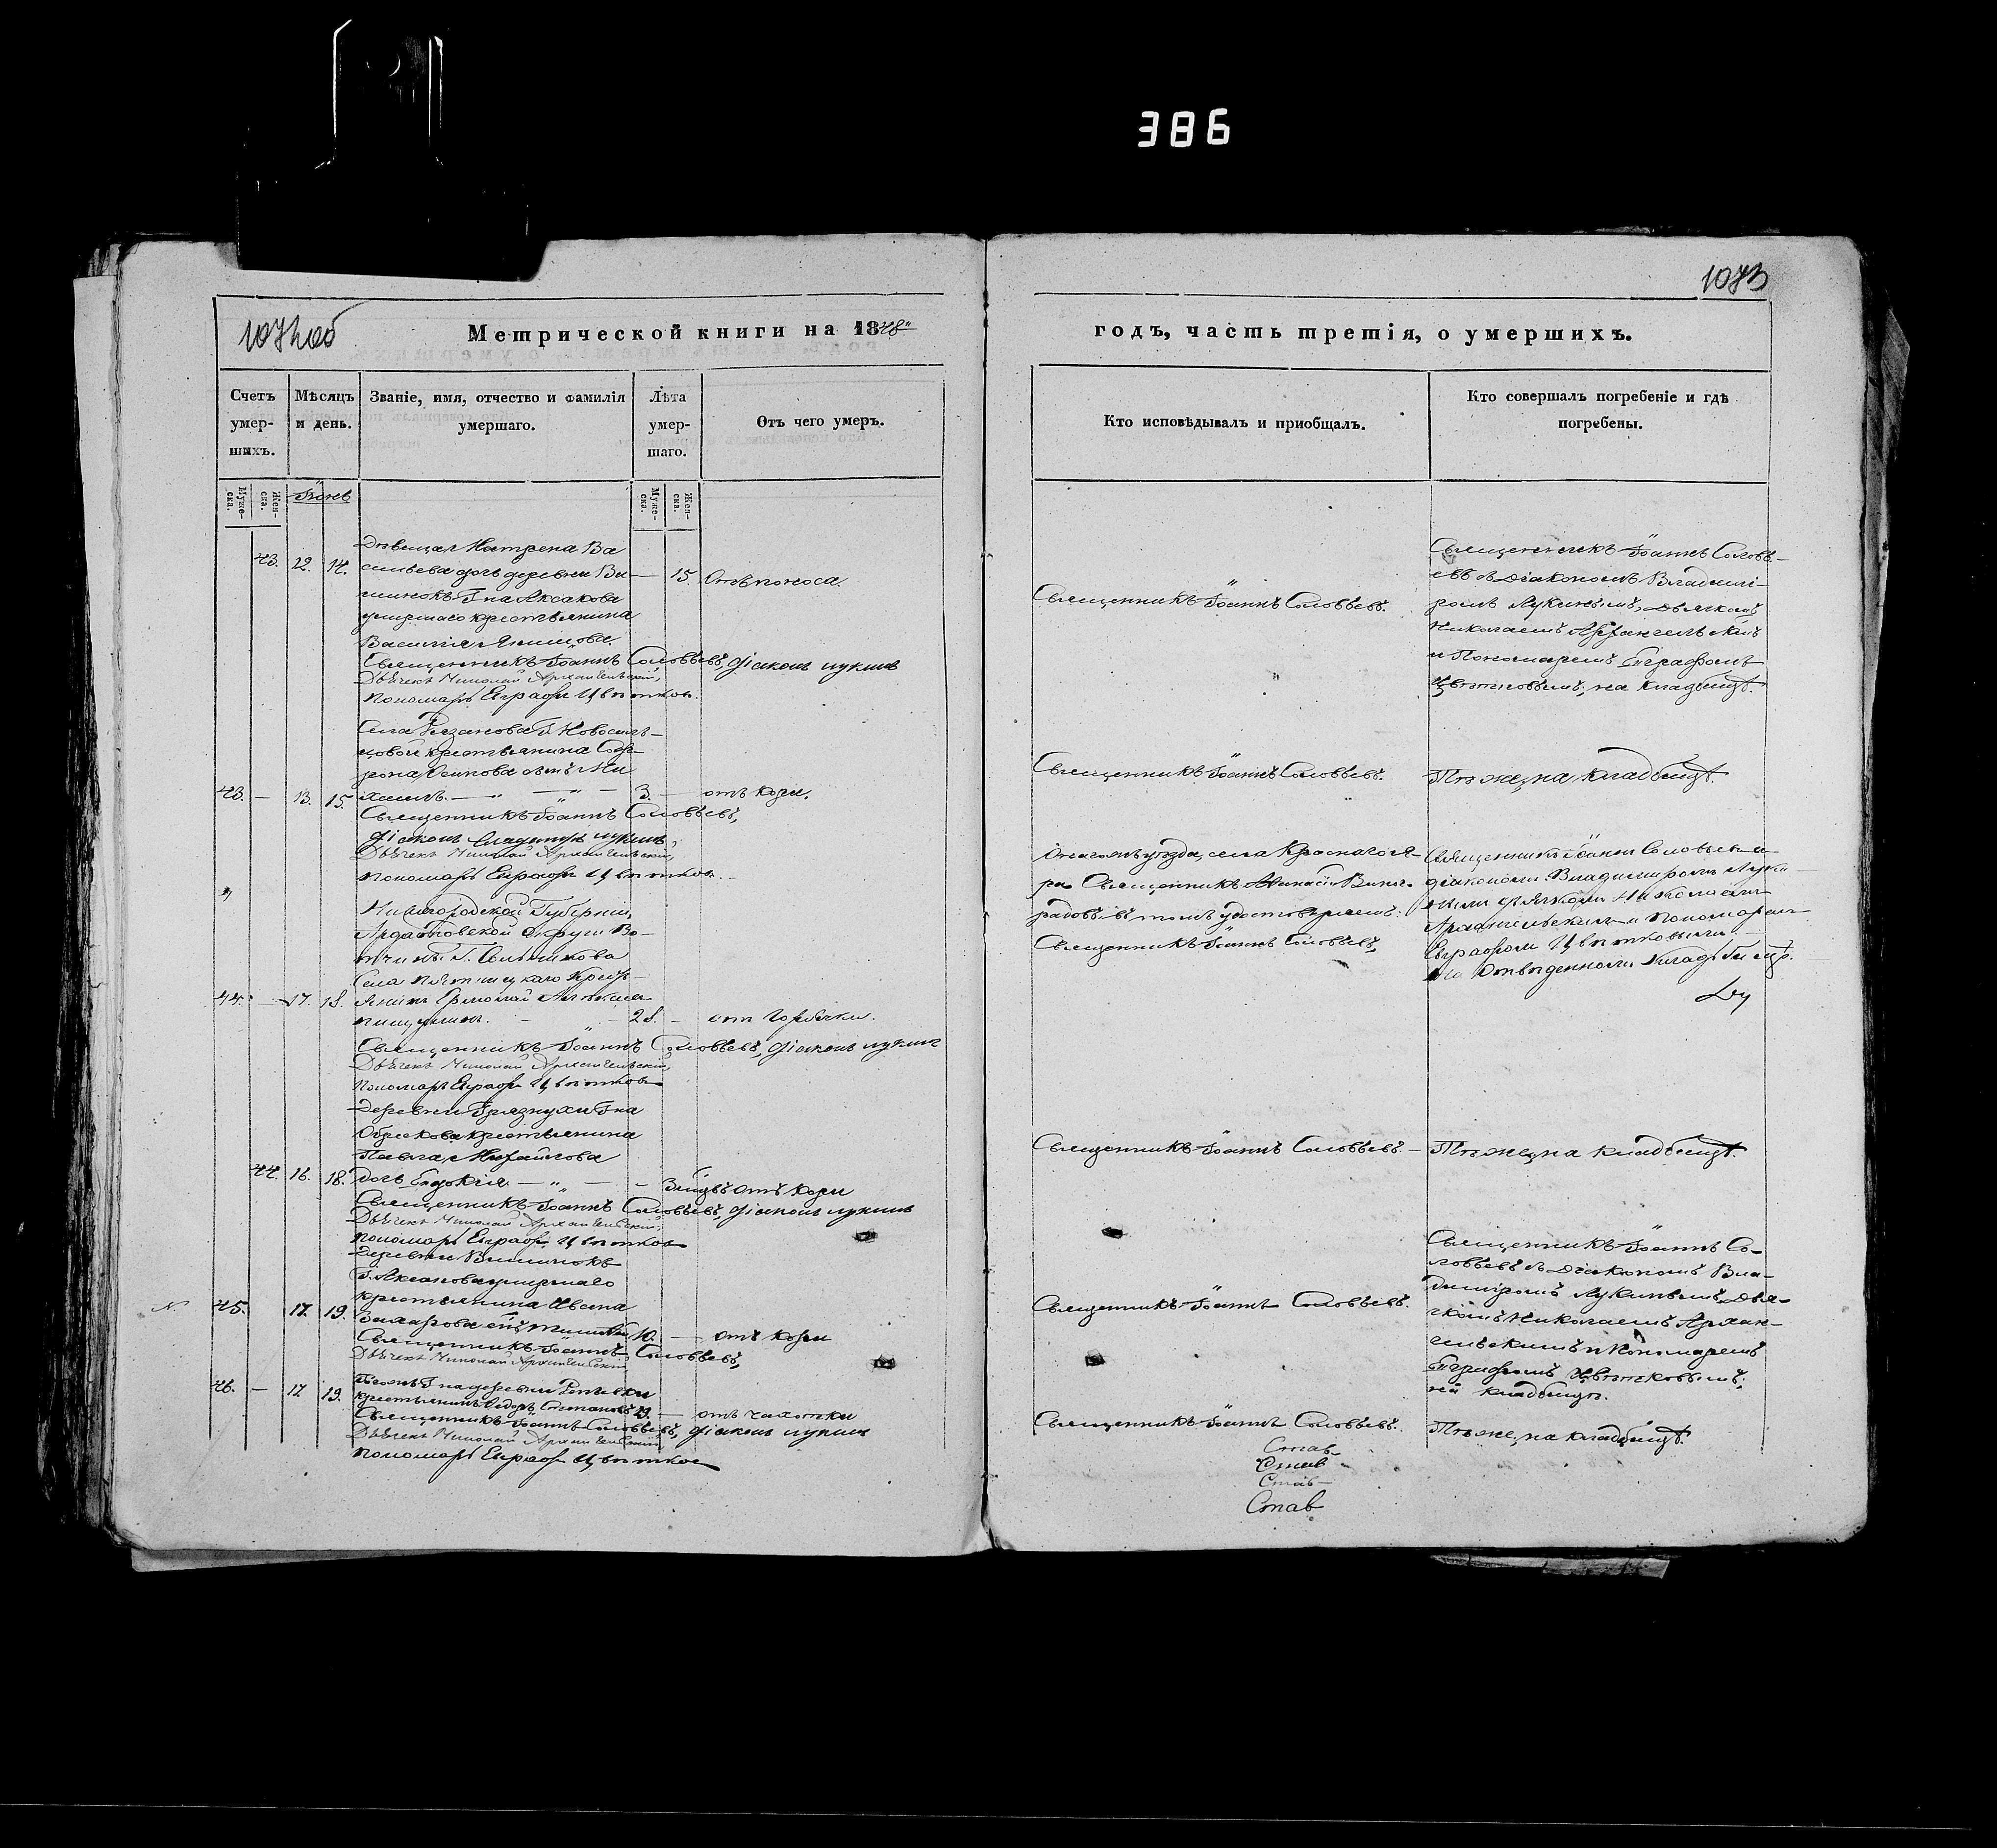 386
1073
1072 об
Метрической книги на 1848
годъ, часть третія, о умершихъ.
Счетъ умер-шихъ.
Мѣсяцъ и день.
Званіе, имя, отчество и фамилія умершаго.
Лѣта умер-шаго.
Отъ чего умеръ.
Кто исповѣдывалъ и приобщалъ.
Кто совершалъ погребеніе и гдѣ погребены.
Муже-ска.
Жен-ска.
Муже-ска.
Жен-ска.
43. 12. 14.
Дѣвица Матрена Ва
сильева дочь деревни Ви
шнокъ Г на Аксакова
умершаго крестьянина
Василія
15. Отъ поноса.
Священникъ Іоаннъ Соловьевъ, діаконъ Лукинъ
Дьячекъ Николай Архангельскій,
Пономарь Евграфъ Цвѣтковъ.
Священникъ Іоаннъ Соловьевъ.
Священникъ Іоаннъ Соловь-
евъ съ Діакономъ Владими-
ромъ Лукинымъ, Дьячкомъ
Николаемъ Архангельскимъ
и Пономаремъ Евграфомъ
Цвѣтковымъ, на кладбищѣ.
Села Рязанова Г. Новосиль-
цовой крестьянина Соф-
рона Осипова сынъ Ми
43. — 13. 15. хаилъ. — „ — 3. — отъ кори.
Священникъ Іоаннъ Соловьевъ,
Діаконъ Владимиръ Лукинъ,
Дьячекъ Николай Архангельскій,
Пономарь Евграфъ Цвѣтковъ.
Священникъ Іоаннъ Соловьевъ.
Тѣ же, на кладбищѣ.
Нижегородской Губерніи,
Ардатовской Округи Во-
тчины Г.
Села
44. — 17. 18. янинъ Ермолай
28. — отъ Горячки.
Священникъ Іоаннъ Соловьевъ, Діаконъ Лукинъ
Дьячекъ Николай Архангельскій,
Пономарь Евграфъ Цвѣтковъ
уѣзда, села Краснаго Я-
ра Священникъ Виног-
радовъ въ томъ удостовѣряетъ:
Священникъ Іоаннъ Соловьевъ,
Священникъ Іоаннъ Соловьевъ и
діакономъ Владимиромъ Луки-
нымъ дьячкомъ Николаемъ
Архангельскимъ и пономаремъ
Евграфомъ Цвѣтковымъ
на отведенномъ кладбищѣ.
Деревни Грязнухи Г на
Обрескова крестьянина
Павла Михайлова
44. 16. 18. дочь Евдокія — „ — 3 мцвъ отъ кори
Священникъ Іоаннъ Соловьевъ, Діаконъ Лукинъ
Дьячекъ Николай Архангельскій,
Пономарь Евграфъ Цвѣтковъ
Священникъ Іоаннъ Соловьевъ. —
Тѣ же, на кладбищѣ.
Деревни Вишнокъ
Г. Аксакова умершаго
крестьянина Ивана
45. 17. 19. Захарова сынъ 10. — отъ кори
Священникъ Іоаннъ Соловьевъ,
Дьячекъ Николай Архангельскій
Священникъ Іоаннъ Соловьевъ.
Священникъ Іоаннъ Со-
ловьевъ съ Діакономъ Вла-
димиромъ Лукинымъ, Дья-
чкомъ Николаемъ Архан-
гельскимъ и Пономаремъ
Евграфомъ Цвѣтковымъ,
на кладбищѣ.
Г на деревни Репьевки
46. — 17. 19. крестьянинъ Ѳедоръ Степановъ — отъ чахотки
Священникъ Іоаннъ Соловьевъ, Діаконъ Лукинъ
Дьячекъ Николай Архангельскій
Пономарь Евграфъ Цвѣтков
Священникъ Іоаннъ Соловьевъ.
Тѣ же, на кладбищѣ.